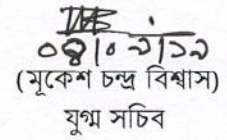 ০৪|০৯|১৯
(মূকেশ চন্দ্র বিশ্বাস)
যুগ্ম সচিব